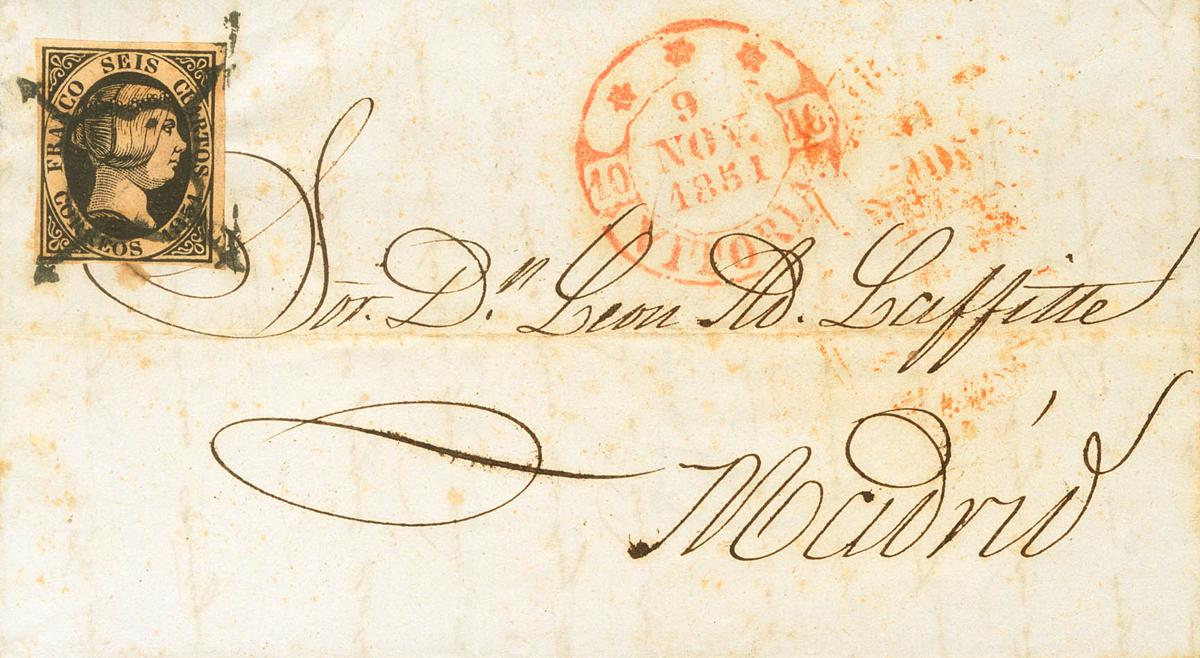 FRANCO SEIS CUARTOS
CORREOS 1851
9
NOV.
1851
10 10
VITTORIA
Sor. Dn. Leon Ad. Laffitte
Madrid